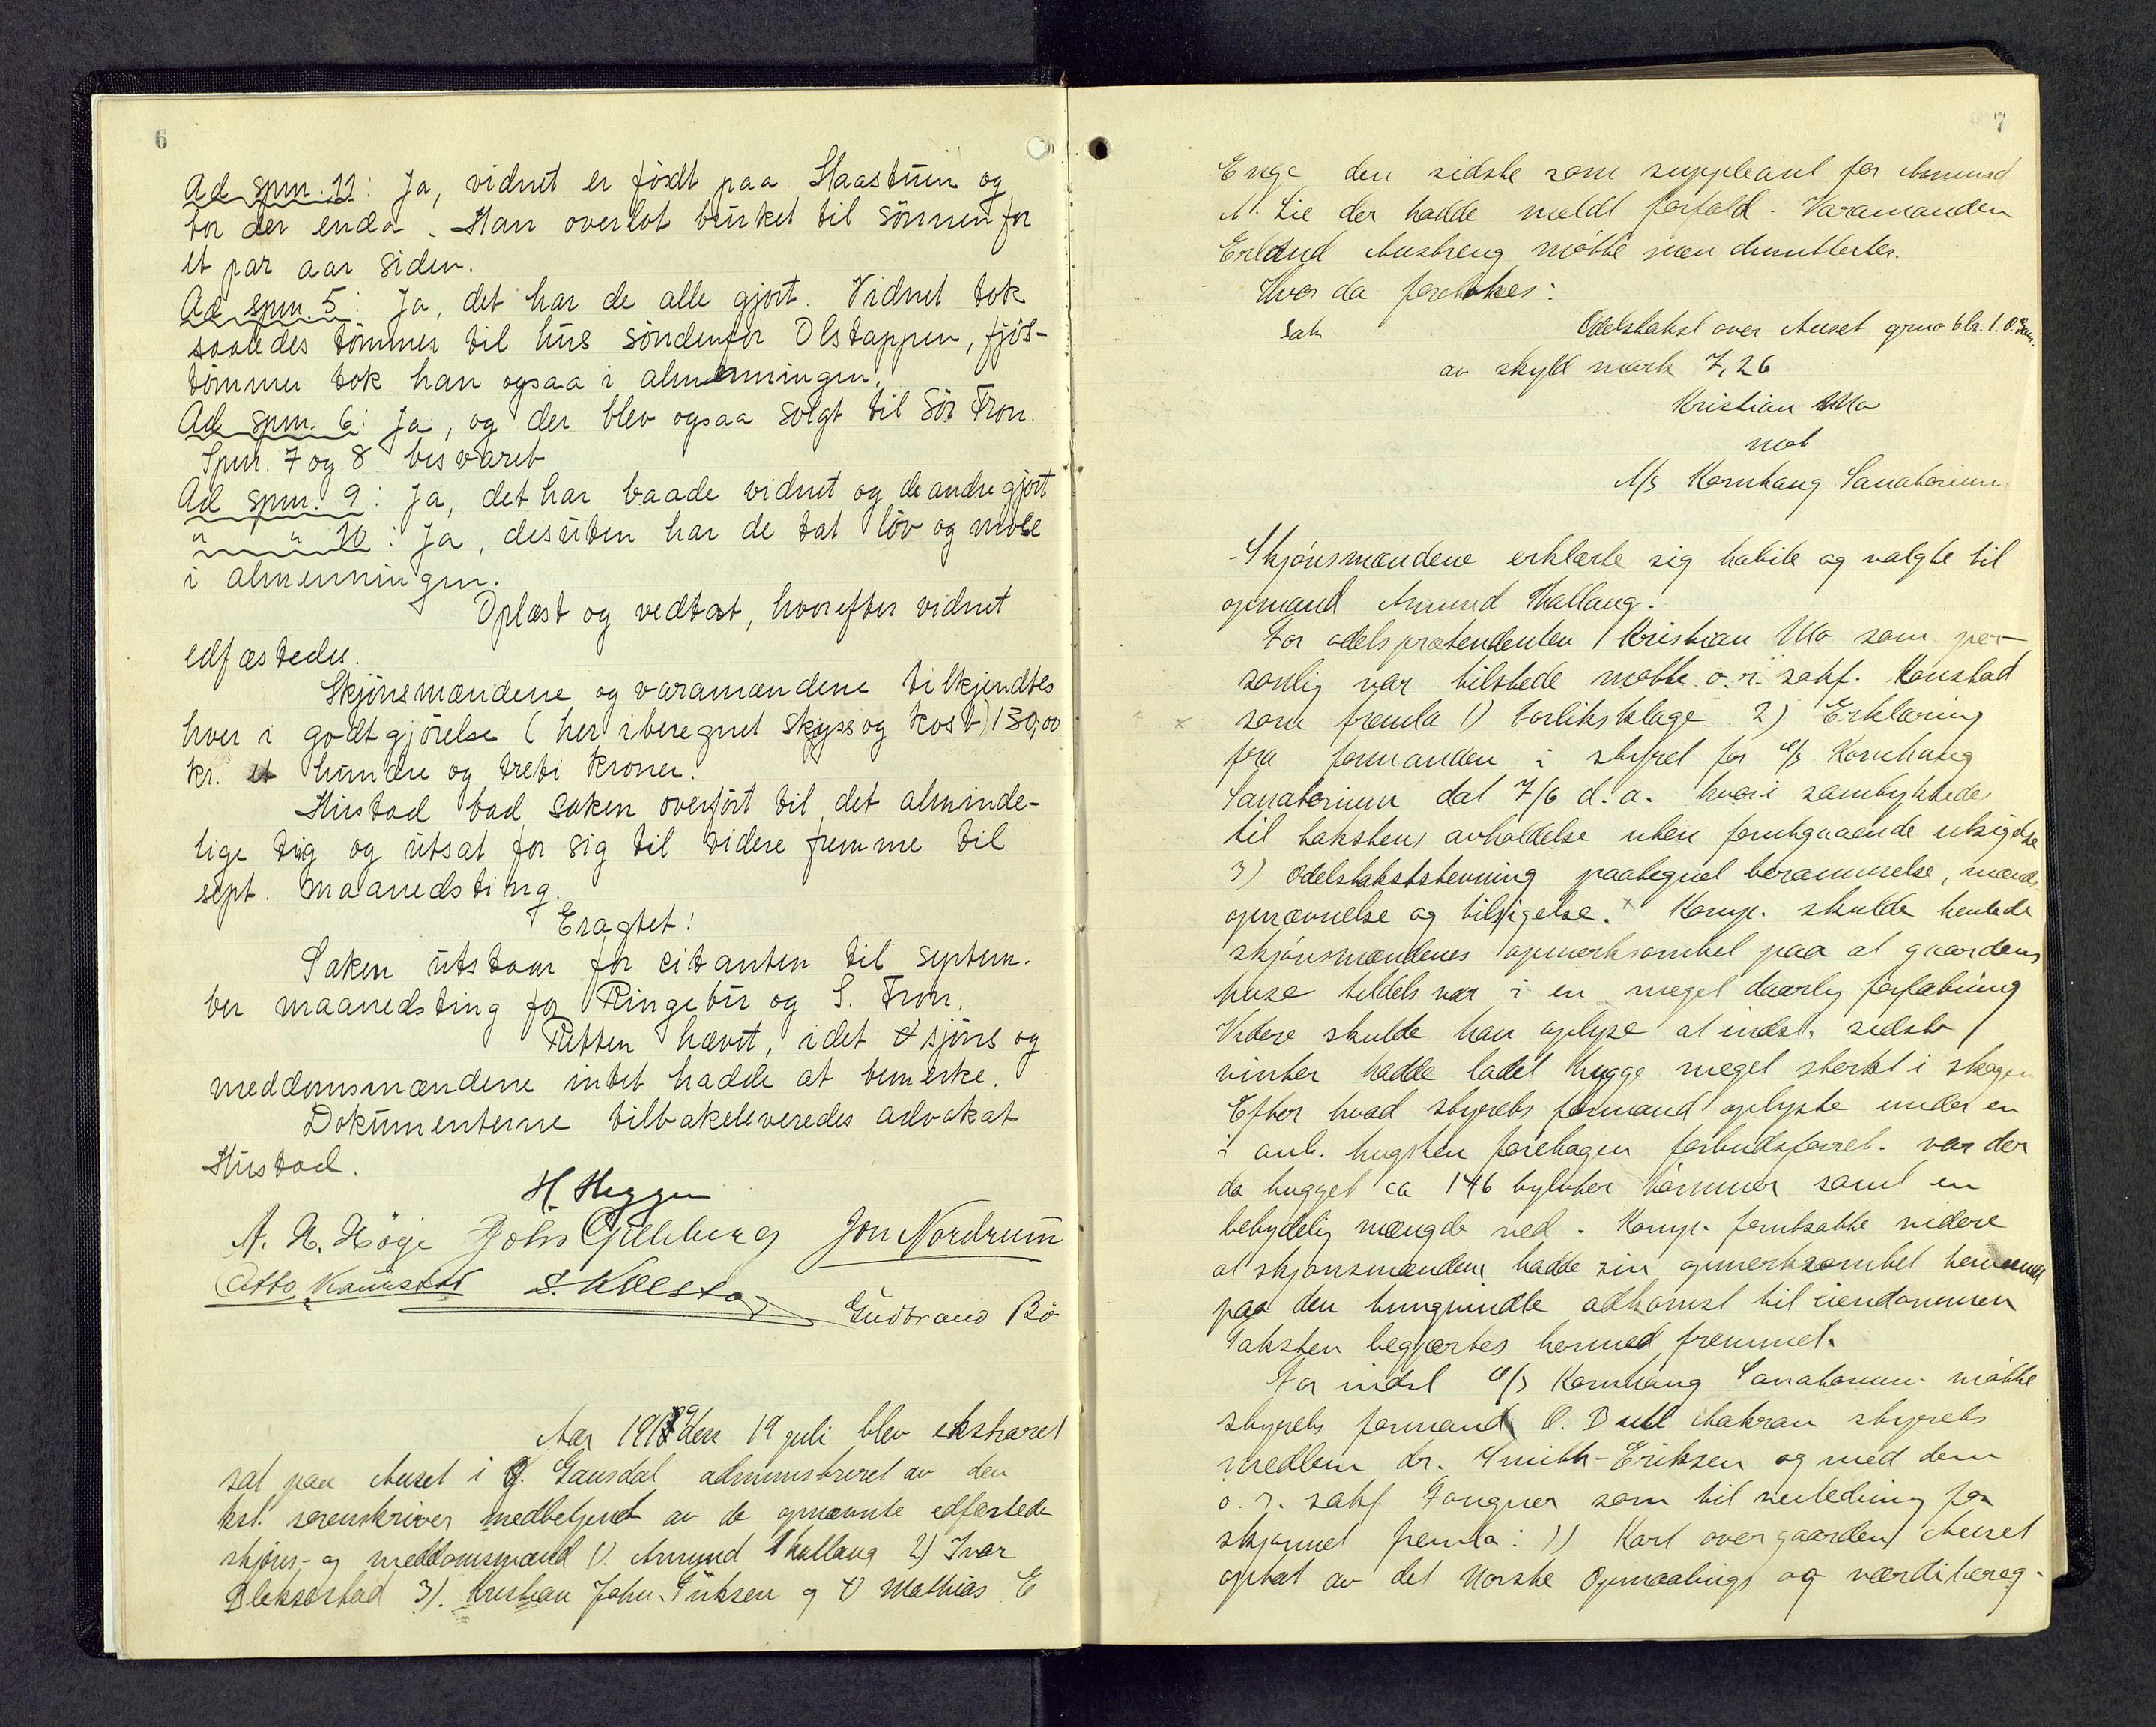 6
Ad spm. 11: Ja, vidnet er født paa Haastuen og
bor der enda. Han overlot bruket til sønnen for
et par aar siden.
Ad spm. 5: Ja, det har de alle gjort. Vidnet tok
saaledes tømmer til hus søndenfor Olstappen, fjøs-
tømmer tok han ogsaa i almenningen.
Ad spm. 6: Ja, og der blev ogsaa solgt til Sør Fron.
Spm. 7 og 8 besvaret
Ad spm. 9: Ja, det har baade vidnet og de andre gjort
" " 10: Ja, desuten har de tat løv og mose
i almenningen.
Oplæst og vedtat, hvorefter vidnet
edfæstedes.
Skjønsmændene og varamændene tilkjendtes
hver i godtgjørelse (her iberegnet skyss og kost) 130,00
kr. et hundre og treti kroner.
Hustad bad saken overført til det alminde-
lige ting og utsat for sig til videre fremme til
sept. maanedsting.
Eragtet:
Saken utstaar for citanten til septem-
ber maanedsting for Ringebu og S. Fron.
Retten hævet, idet skjøns og
meddomsmændene intet hadde at bemerke.
Dokumenterne tilbakeleveredes advokat
Hustad.
H. Heggen
A. H. Høge Johs Gillebery Jon Nordrum
Otto Kaunstad S. Kolstad
Gudbrand Bø
Aar 1919 den 19 juli blev ekstraret
sat paa Auset i Ø. Gausdal administreret av den
kst. sorenskriver medbetjent av de opnævnte edfæstede
skjøns- og meddomsmænd 1). Amund Thallaug 2) Ivar
Bleksastad 3). Kristian Johs. Eriksen og 4) Mathias E
7
Enge den sidste som suppleant for Amund
A. Lie der hadde meldt forfald. Varamanden
Erland Austreng møtte men dimitteres.
Hvor da foretokes:
Sak Odelstakst over Auset grno 6 br. 1. Ø. Gau.
av skyld mark 7,26
Kristian Mo
mot
A/s Kornhaug Sanatorium
Skjønsmændene erklærte sig habile og valgte til
opmand Amund Thallaug.
For odelsprætendenten Kristian Mo som per-
sonlig var tilstede møtte o.r. sakf. Konstad
som fremla 1) Forliksklage 2) Erklæring
fra formanden i styret for a/s Kornhaug
Sanatorium dat 7/6 d.a. hvori samtykkedes
til takstens avholdelse uten forutgaaende utsigelse
3) Odelstakststevning paategnet berammelse, mænds
opnævnelse og tilsigelse. x Komp. skulde henlede
skjønsmændenes opmerksomhet paa at gaardens
huse tildels var i en meget daarlig forfatning
Videre skulde han oplyse at indst. sidste
vinter hadde ladet hugge meget sterkt i skogen
Efter hvad styrets formand oplyste under en
i anl. hugsten foretagen forbudsforret. var der
da hugget ca 146 tylvter tømmer samt en
betydelig mængde ved. Komp. forutsatte videre
at skjønsmændene hadde sin opmerksomhet henvendt
paa den tungvindte adkomst til eiendommen
Taksten begjærtes hermed fremmet.
For indst a/s Kornhaug Sanatorium møtte
styrets formand O. Bull Aakran styrets
medlem dr. Smith-Eriksen og med dem
o.r. sakf Fougner som til veiledning for
skjønnet fremla: 1) Kart over gaarden Auset
optat av det Norske Opmaalings og værdibereg-